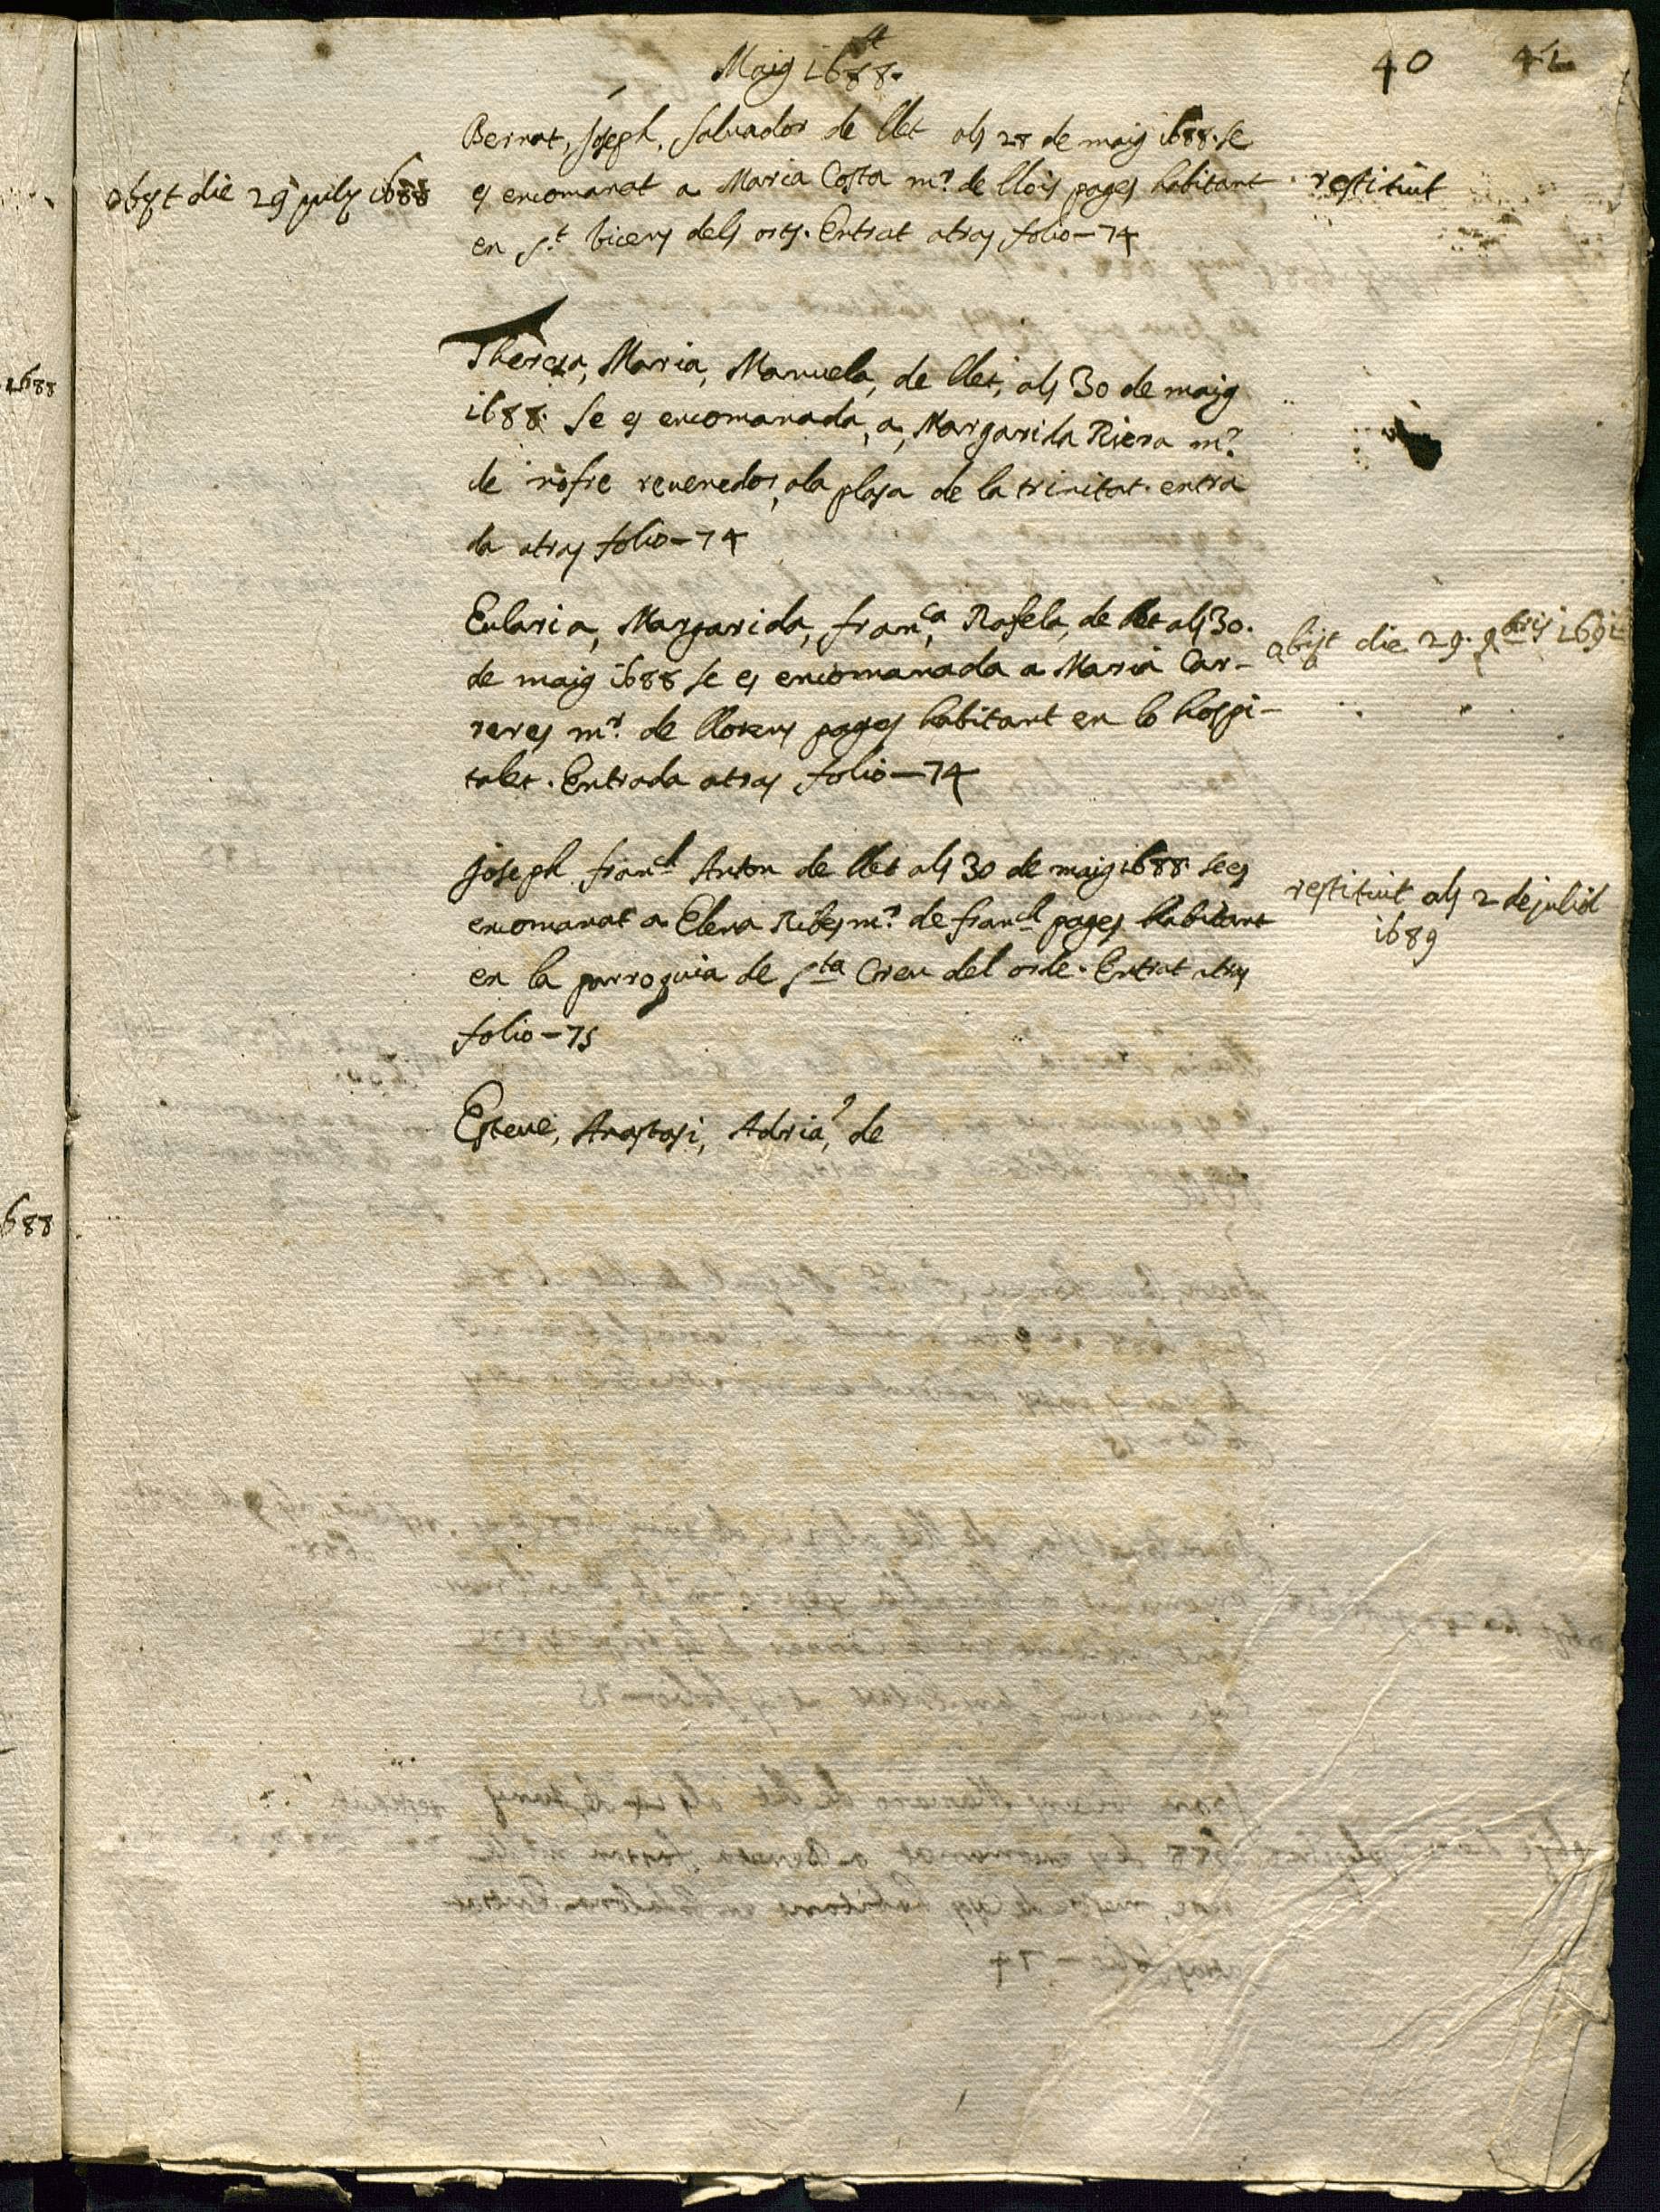 Maig 1688.
40 41
Bernat, Joseph, Salvador de llet als 28 de maig 1688. se
es encomanat a Maria Costa mr. de llois pages habitant
en st. bicens dels orts. Entrat atras folio - 74
obijt die 29 julij 1688
restituit
Thereza, Maria, Manuela, de llet, als 30 de maig
1688. Se es encomanada, a, Margarida Riera mr.
de nofre revenedor, ala plasa de la trinitat. entra
da atras folio - 74
Eularia, Margarida, franca, Rafela, de llet als 30.
de maig 1688 se es encomanada a Maria Car-
reres mr. de llorens pages habitant en lo hospi-
talet. Entrada atras folio - 74
obijt die 29. 9bris 1691
Joseph franch Anton de llet als 30 de maig 1688. se es
encomanat a Elena Ribes mr. de franch pages habitant
en la parroquia de sta Creu del orde. Entrat atras
folio - 75
restituit als 2 de juliol
1689
Esteve, Anastasi, Adria, de
1688
688